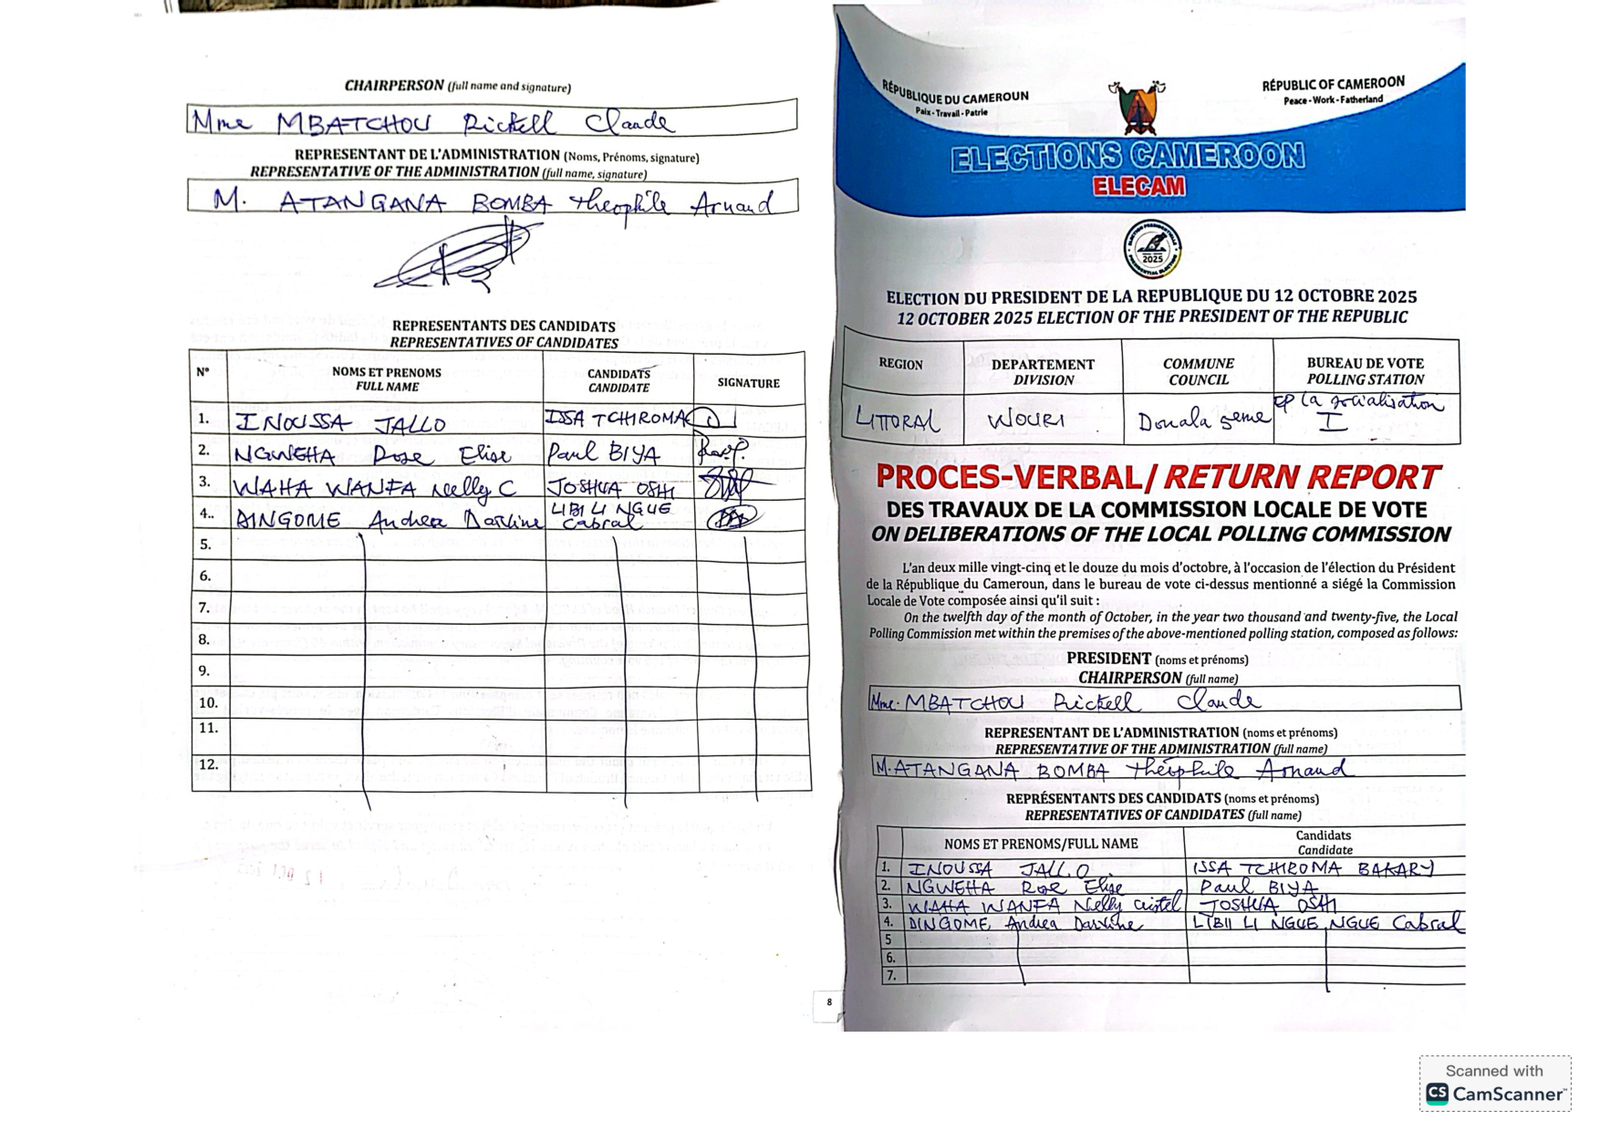 CHAIRPERSON (full name and signature)
Mme MBATCHOU Rickell Claude
REPRESENTANT DE L'ADMINISTRATION (Noms, Prénoms, signature)
REPRESENTATIVE OF THE ADMINISTRATION (full name, signature)
M. ATANGANA BOMBA Théophile Arnaud
REPRESENTANTS DES CANDIDATS
REPRESENTATIVES OF CANDIDATES
N° NOMS ET PRENOMS FULL NAME CANDIDATS CANDIDATE SIGNATURE
1. INOUSSA JALLO ISSA TCHIROMA
2. NGWEHA Rose Elise Paul BIYA
3. WAHA WANFA Nelly C JOSHUA OSHI
4.. DINGOME Andrea Darline LIBI LI NGUE Cabral
5.
6.
7.
8.
9.
10.
11.
12.
8
RÉPUBLIQUE DU CAMEROUN
Paix - Travail - Patrie
RÉPUBLIC OF CAMEROON
Peace - Work - Fatherland
ELECTIONS CAMEROON
ELECAM
2025
ELECTION DU PRESIDENT DE LA REPUBLIQUE DU 12 OCTOBRE 2025
12 OCTOBER 2025 ELECTION OF THE PRESIDENT OF THE REPUBLIC
REGION DEPARTEMENT DIVISION COMMUNE COUNCIL BUREAU DE VOTE POLLING STATION
LITTORAL WOURI Douala 5eme EP la socialisation I
PROCES-VERBAL/ RETURN REPORT
DES TRAVAUX DE LA COMMISSION LOCALE DE VOTE
ON DELIBERATIONS OF THE LOCAL POLLING COMMISSION
L'an deux mille vingt-cinq et le douze du mois d'octobre, à l'occasion de l'élection du Président
de la République du Cameroun, dans le bureau de vote ci-dessus mentionné a siégé la Commission
Locale de Vote composée ainsi qu'il suit :
On the twelfth day of the month of October, in the year two thousand and twenty-five, the Local
Polling Commission met within the premises of the above-mentioned polling station, composed as follows:
PRESIDENT (noms et prénoms)
CHAIRPERSON (full name)
Mme. MBATCHOU Rickell Claude
REPRESENTANT DE L'ADMINISTRATION (noms et prénoms)
REPRESENTATIVE OF THE ADMINISTRATION (full name)
M. ATANGANA BOMBA Théophile Arnaud
REPRÉSENTANTS DES CANDIDATS (noms et prénoms)
REPRESENTATIVES OF CANDIDATES (full name)
NOMS ET PRENOMS/FULL NAME Candidats Candidate
1. INOUSSA JALLO ISSA TCHIROMA BAKARY
2. NGWEHA Rose Elise Paul BIYA
3. WAHA WANFA Nelly Cristel JOSHUA OSHI
4. DINGOME Andrea Darline LIBII LI NGUE NGUE Cabral
5
6.
7.
Scanned with
CS CamScanner